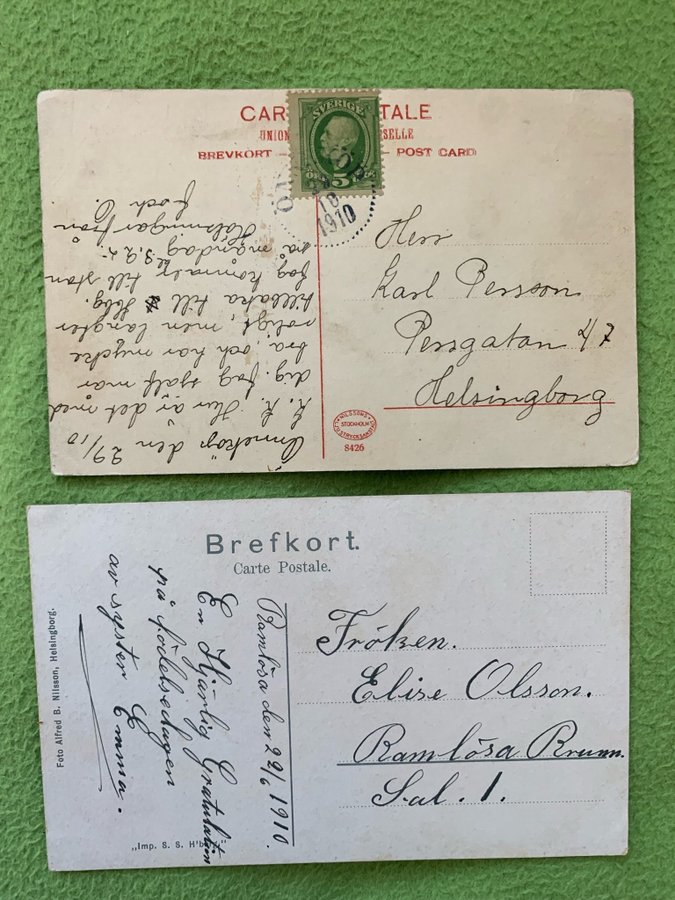 CAR TALE
UNION SELLE
BREVKORT — POST CARD
SVERIGE
5
ÖRE
10
1910
Herr
Karl Persson
Persgatan 47
Helsingborg
Annelöv den 29/10
K. K. Hur är det med
dig. Jag sjelf mår
bra, och har mycke
roligt, men längter
tillbaka till Hbg.
Jag kommer till stan
på måndag
Helsningar från
NILSSONS
STOCKHOLM
8426
Brefkort.
Carte Postale.
Fröken.
Elise Olsson.
Ramlösa Brunn.
Sal. 1.
Ramlösa den 29/6 1910.
En Hjärlig Gratulation
på födelsedagen
av syster Emma.
Foto Alfred B. Nilsson, Helsingborg.
„Imp. S. S. H'b